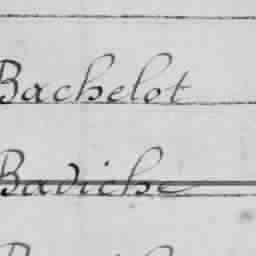 Bachelot
Badiche